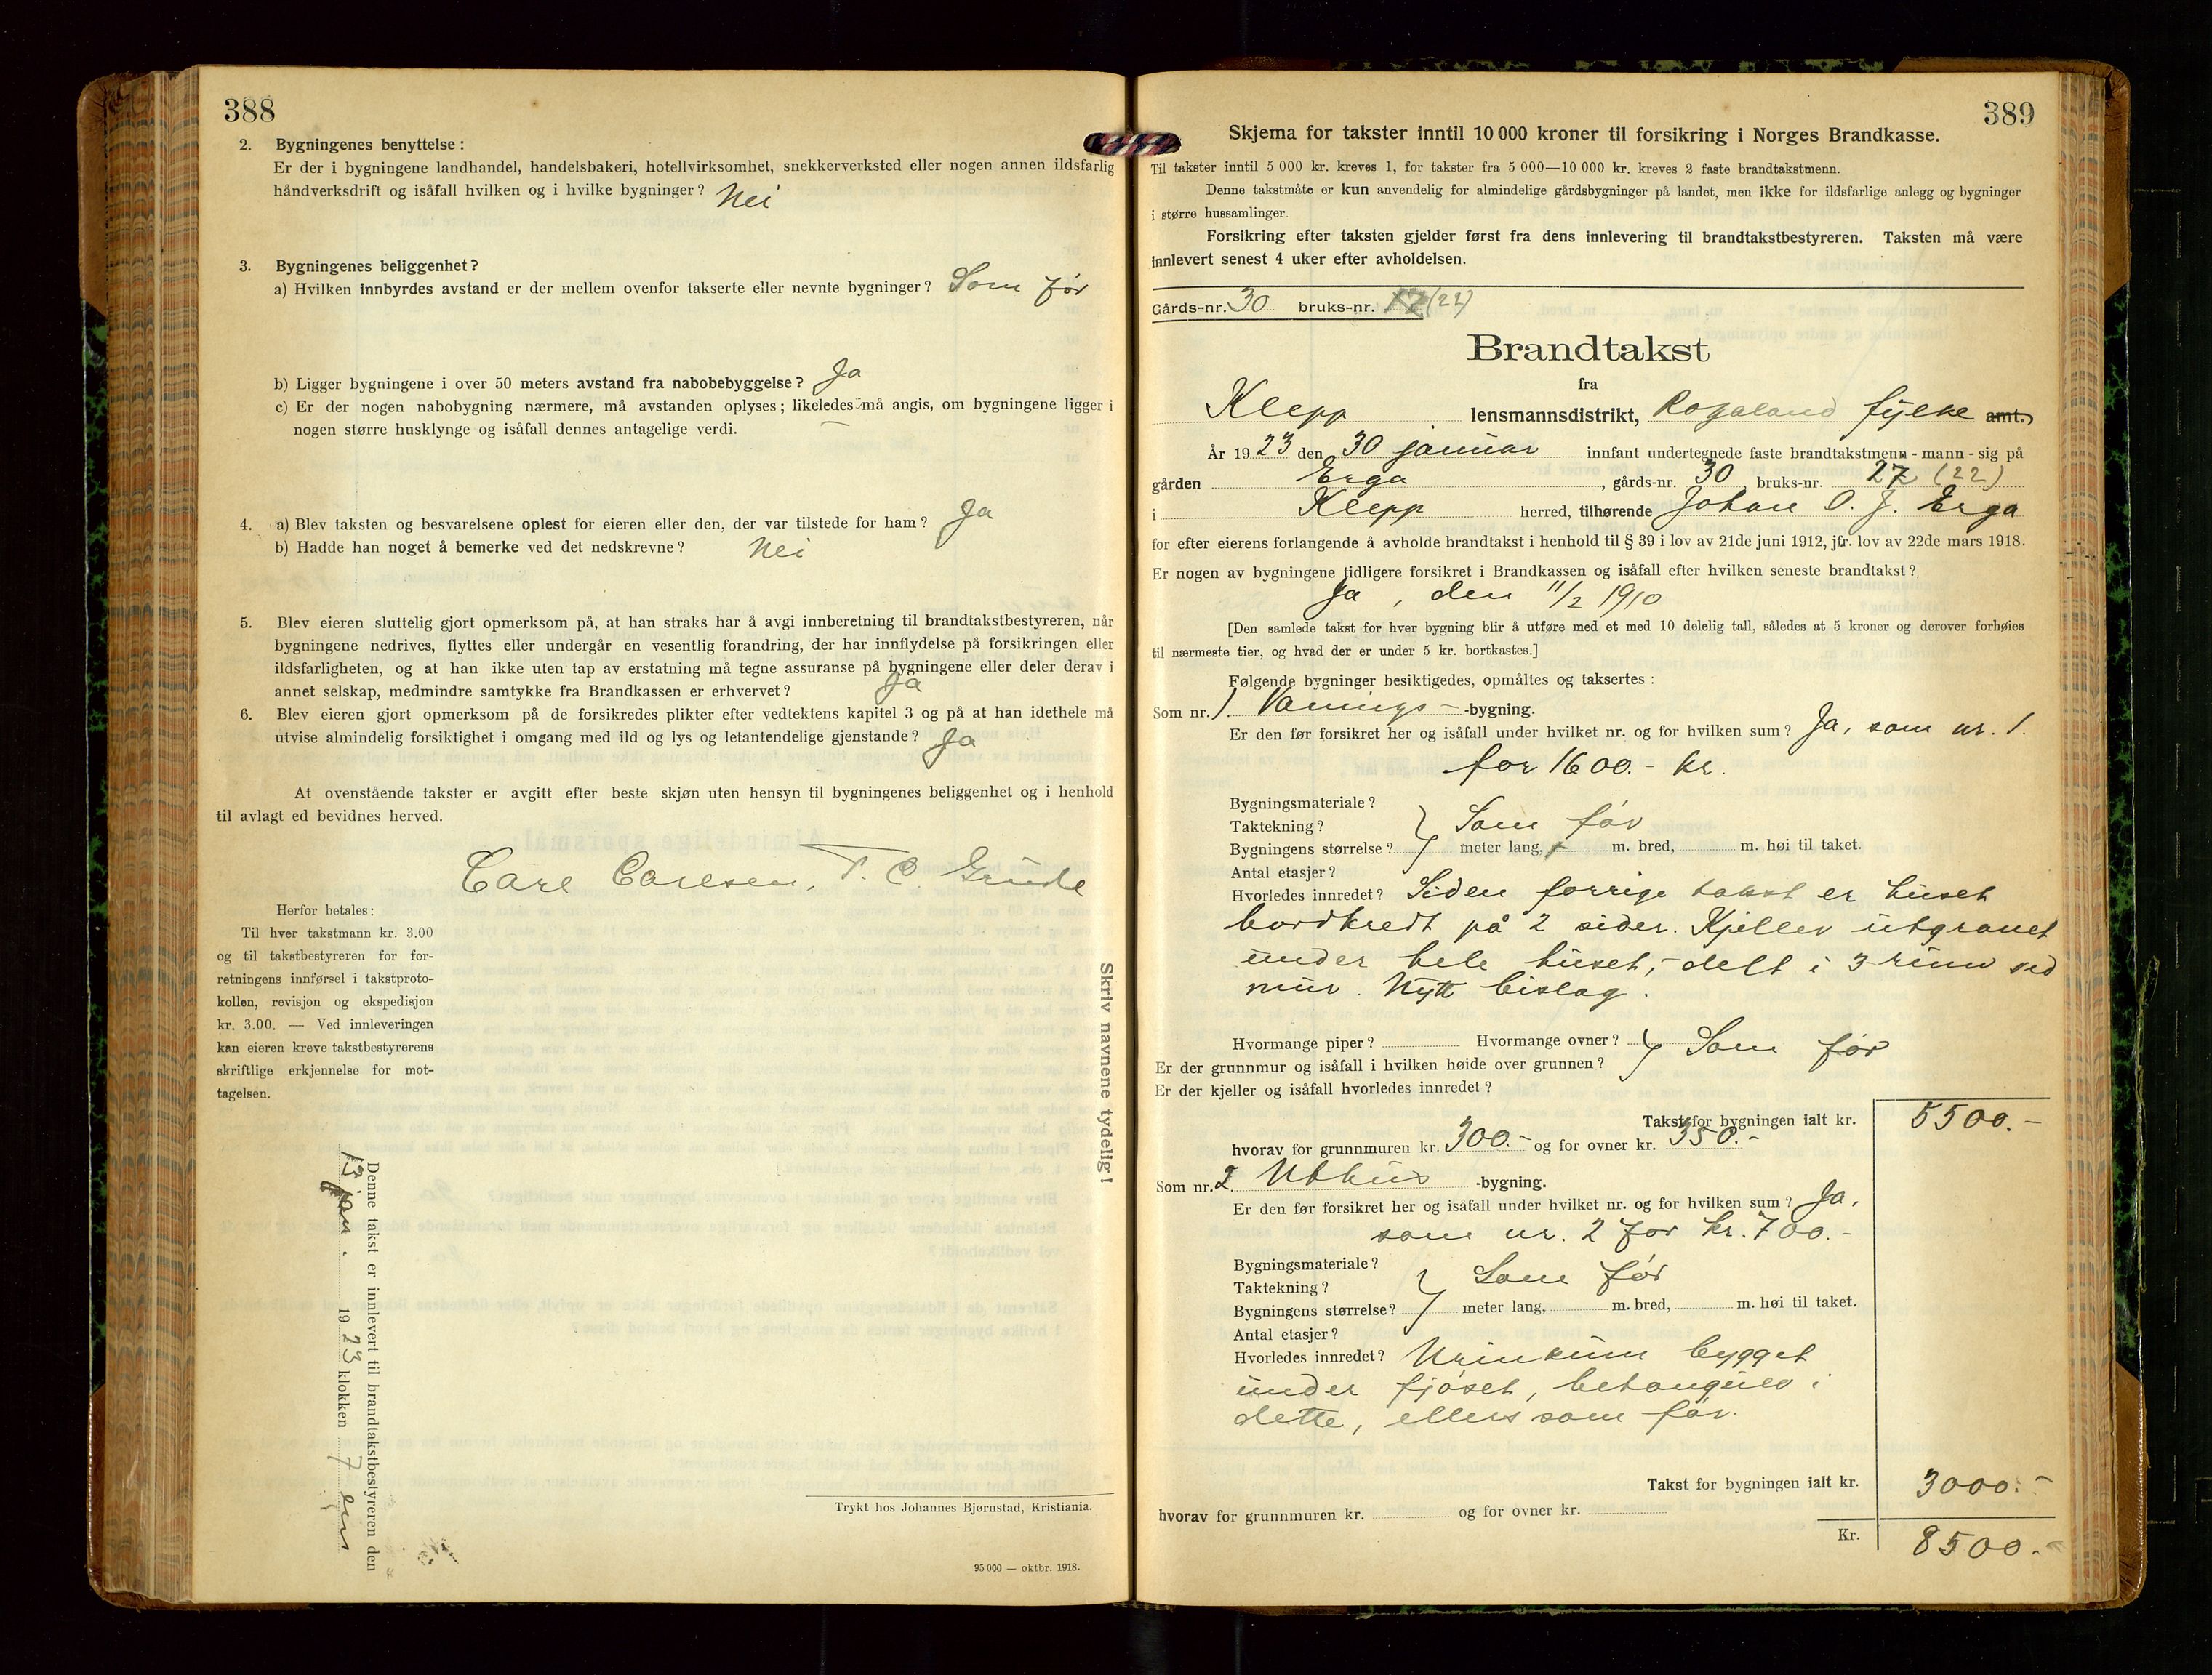 388
2. Bygningenes benyttelse:
Er der i bygningene landhandel, handelsbakeri, hotellvirksomhet, snekkerverksted eller nogen annen ildsfarlig
håndverksdrift og isåfall hvilken og i hvilke bygninger? Nei
3. Bygningenes beliggenhet?
a) Hvilken innbyrdes avstand er der mellem ovenfor takserte eller nevnte bygninger? Som før
b) Ligger bygningene i over 50 meters avstand fra nabobebyggelse? Ja
c) Er der nogen nabobygning nærmere, må avstanden oplyses; likeledes må angis, om bygningene ligger i
nogen større husklynge og isåfall dennes antagelige verdi. —
4. a) Blev taksten og besvarelsene oplest for eieren eller den, der var tilstede for ham? Ja
b) Hadde han noget å bemerke ved det nedskrevne? Nei
5. Blev eieren sluttelig gjort opmerksom på, at han straks har å avgi innberetning til brandtakstbestyreren, når
bygningene nedrives, flyttes eller undergår en vesentlig forandring, der har innflydelse på forsikringen eller
ildsfarligheten, og at han ikke uten tap av erstatning må tegne assuranse på bygningene eller deler derav i
annet selskap, medmindre samtykke fra Brandkassen er erhvervet? Ja
6. Blev eieren gjort opmerksom på de forsikredes plikter efter vedtektens kapitel 3 og på at han idethele må
utvise almindelig forsiktighet i omgang med ild og lys og letantendelige gjenstande? Ja
At ovenstående takster er avgitt efter beste skjøn uten hensyn til bygningenes beliggenhet og i henhold
til avlagt ed bevidnes herved.
Carl Carlsen, T. C. Grude
Herfor betales:
Til hver takstmann kr. 3.00
og til takstbestyreren for for-
retningens innførsel i takstproto-
kollen, revisjon og ekspedisjon
kr. 3.00. — Ved innleveringen
kan eieren kreve takstbestyrerens
skriftlige erkjennelse for mot-
tagelsen.
Skriv navnene tydelig!
Denne takst er innlevert til brandtakstbestyreren den
jan. 1923 klokken 7 em
Trykt hos Johannes Bjørnstad, Kristiania.
95 000 — oktbr. 1918.
389
Skjema for takster inntil 10 000 kroner til forsikring i Norges Brandkasse.
Til takster inntil 5 000 kr. kreves 1, for takster fra 5 000—10 000 kr. kreves 2 faste brandtakstmenn.
Denne takstmåte er kun anvendelig for almindelige gårdsbygninger på landet, men ikke for ildsfarlige anlegg og bygninger
i større hussamlinger.
Forsikring efter taksten gjelder først fra dens innlevering til brandtakstbestyreren. Taksten må være
innlevert senest 4 uker efter avholdelsen.
Gårds-nr. 30 bruks-nr. 17 (22)
Brandtakst
fra
Klepp lensmannsdistrikt, Rogaland fylke amt.
År 1923 den 30 januar innfant undertegnede faste brandtakstmenn - mann - sig på
gården Erga, gårds-nr. 30, bruks-nr. 27 (22)
i Klepp herred, tilhørende Johan O. J. Erga
for efter eierens forlangende å avholde brandtakst i henhold til § 39 i lov av 21de juni 1912, jfr. lov av 22de mars 1918.
Er nogen av bygningene tidligere forsikret i Brandkassen og isåfall efter hvilken seneste brandtakst?
Ja, den 11/2 1910
[Den samlede takst for hver bygning blir å utføre med et med 10 delelig tall, således at 5 kroner og derover forhøies
til nærmeste tier, og hvad der er under 5 kr. bortkastes.]
Følgende bygninger besiktigedes, opmåltes og taksertes:
Som nr. 1. Vånings- -bygning.
Er den før forsikret her og isåfall under hvilket nr. og for hvilken sum? Ja, som nr. 1.
for 1600.- kr.
Bygningsmateriale?
Taktekning? } Som før
Bygningens størrelse? meter lang, m. bred, m. høi til taket.
Antal etasjer?
Hvorledes innredet? Siden forrige takst er huset
bordkledt på 2 sider. Kjeller utgravet
under hele huset, delt i 3 rum ved
mur. Nytt bislag.
Hvormange piper? Hvormange ovner? } Som før
Er der grunnmur og isåfall i hvilken høide over grunnen?
Er der kjeller og isåfall hvorledes innredet?
Takst for bygningen ialt kr. 5500.-
hvorav for grunnmuren kr. 300.- og for ovner kr. 350.-
Som nr. 2. Uthus -bygning.
Er den før forsikret her og isåfall under hvilket nr. og for hvilken sum? Ja,
som nr. 2 for kr. 700.-
Bygningsmateriale?
Taktekning? } Som før
Bygningens størrelse? meter lang, m. bred, m. høi til taket.
Antal etasjer?
Hvorledes innredet? Urinkum bygget
under fjøset, betongulv i
dette, ellers som før.
Takst for bygningen ialt kr. 3000.-
hvorav for grunnmuren kr. og for ovner kr.
Kr. 8500.-